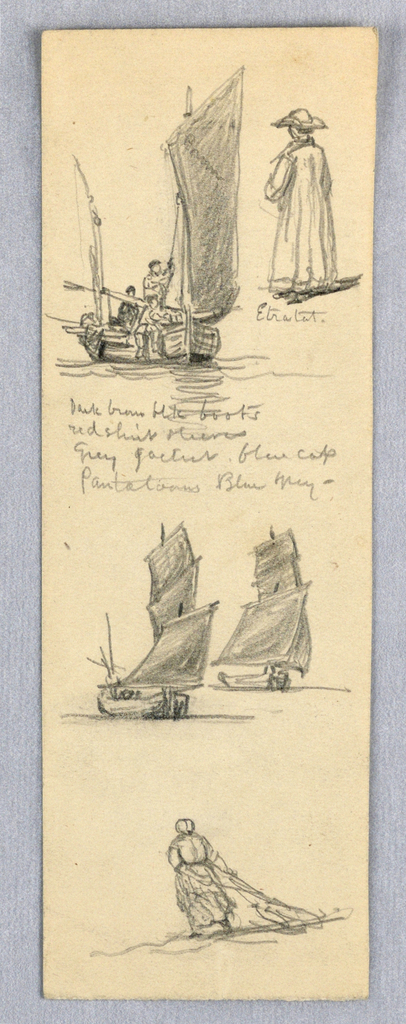 Etratat.
Dark brown boots
red shirt sleeves
Grey jacket. blue cap
Pantaloons Blue Grey -